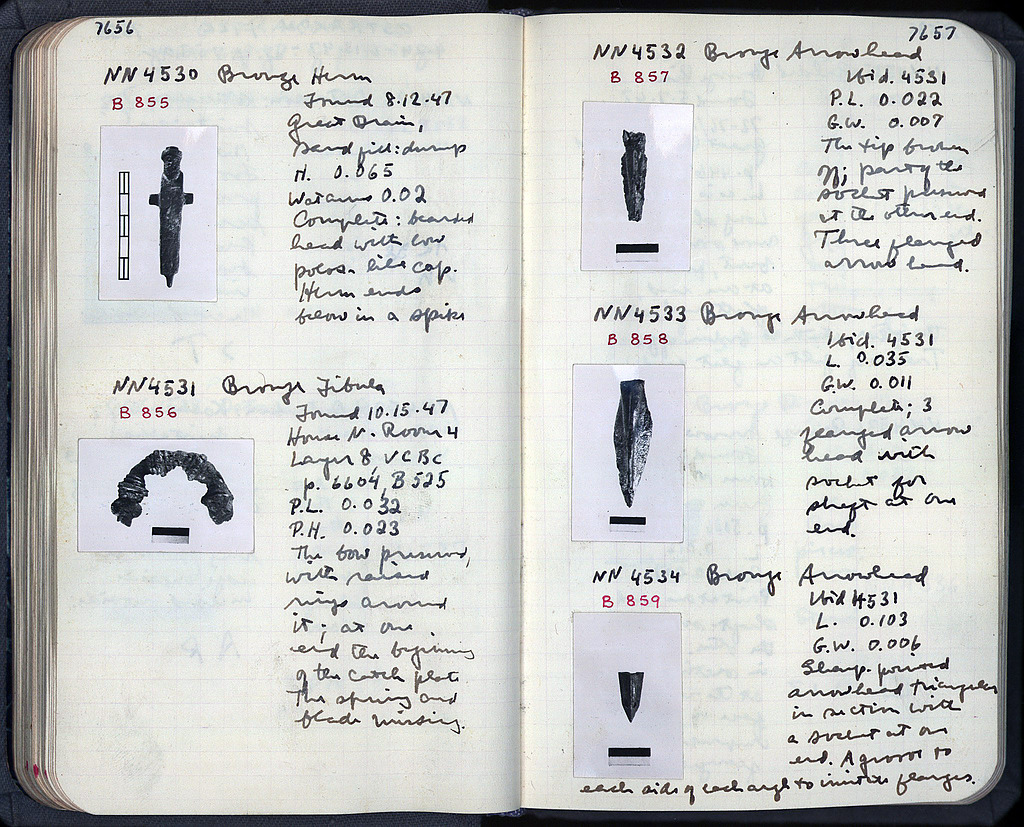 7656
NN4530 Bronze Herm
B 855
Found 8.12.47
Great Drain,
Sand fill: dump
H. 0.065
W at arms 0.02
Complete: bearded
head with low
polos-like cap.
Herm ends
below in a spike
NN4531 Bronze Fibula
B 856
Found 10.15.47
House N. Room 4
Layer 8, VCBC
p. 6604, B 525
P.L. 0.032
P.H. 0.023
The bow preserved,
with raised
rings around
it; at one
end the beginning
of the catch plate
The spring and
blade missing.
7657
NN4532 Bronze Arrowhead
B 857
Ibid. 4531
P.L. 0.022
G.W. 0.007
The tip broken
off; part of the
socket preserved
at the other end.
Three flanged
arrowhead.
NN4533 Bronze Arrowhead
B 858
Ibid. 4531
L. 0.035
G.W. 0.011
Complete; 3
flanged arrow
head with
socket for
shaft at one
end.
NN 4534 Bronze Arrowhead
B 859
Ibid 4531
L. 0.103
G.W. 0.006
Sharp-pointed
arrowhead triangular
in section with
a socket at one
end. A groove to
each side of each angle to imitate flanges.